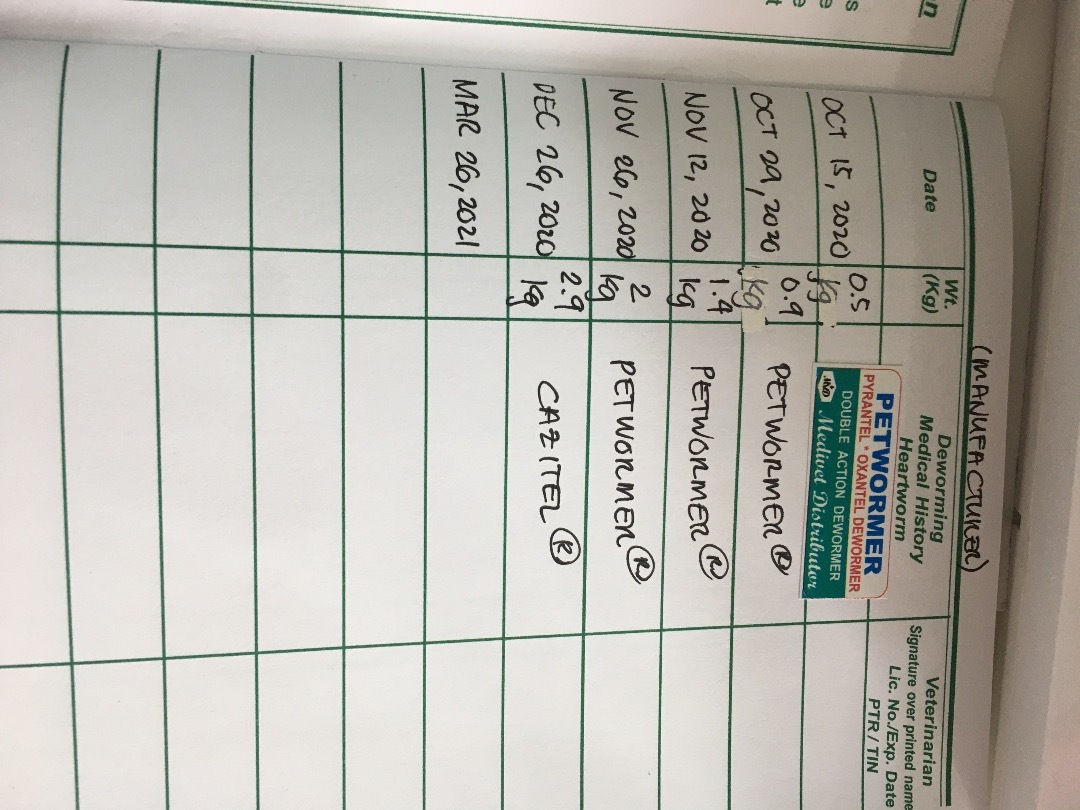 n
s
e
e
t
(MANUFACTURER)
Date
Wt.
(Kg)
Deworming
Medical History
Heartworm
Veterinarian
Signature over printed name
Lic. No./Exp. Date
PTR / TIN
OCT 15, 2020
0.5
kg
PETWORMER
PYRANTEL * OXANTEL DEWORMER
DOUBLE ACTION DEWORMER
Medivet Distributor
OCT 29, 2020
0.9
kg
PETWORMER ®
NOV 12, 2020
1.4
kg
PETWORMER ®
NOV 26, 2020
2
kg
PETWORMER ®
DEC 26, 2020
2.9
kg
CAZITEL ®
MAR 26, 2021